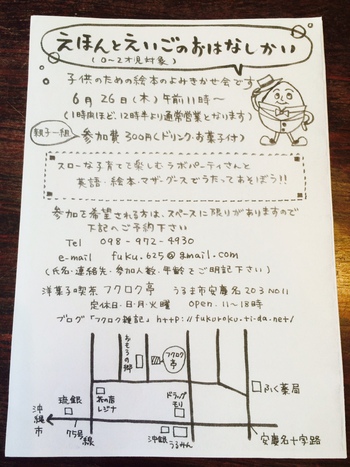 えほんとえいごのおはなしかい
(0～2才児対象)
子供のための絵本のよみきかせ会です
6月26日(木)午前11時～
(1時間ほど、12時半より通常営業となります)
親子一組
参加費300円(ドリンク・お菓子付)
スローな子育てを楽しむラボパーティさんと
英語・絵本・マザーグースでうたってあそぼう!!
参加を希望される方は、スペースに限りがありますので
下記へご予約下さい
Tel 098-972-4930
e-mail fuku.625@gmail.com
(氏名・連絡先・参加人数・年齢をご明記下さい)
洋菓子喫茶 フクロク亭 うるま市安慶名203 No11
定休日.日.月.火曜 open.11～18時
ブログ「フクロク雑記」http://fukuroku.ti-da.net/
おもろの郷
フクロク亭
ふく薬局
琉銀
レジナ
ドラッグモリ
沖縄市
75号線
沖銀
うるみん
安慶名十字路